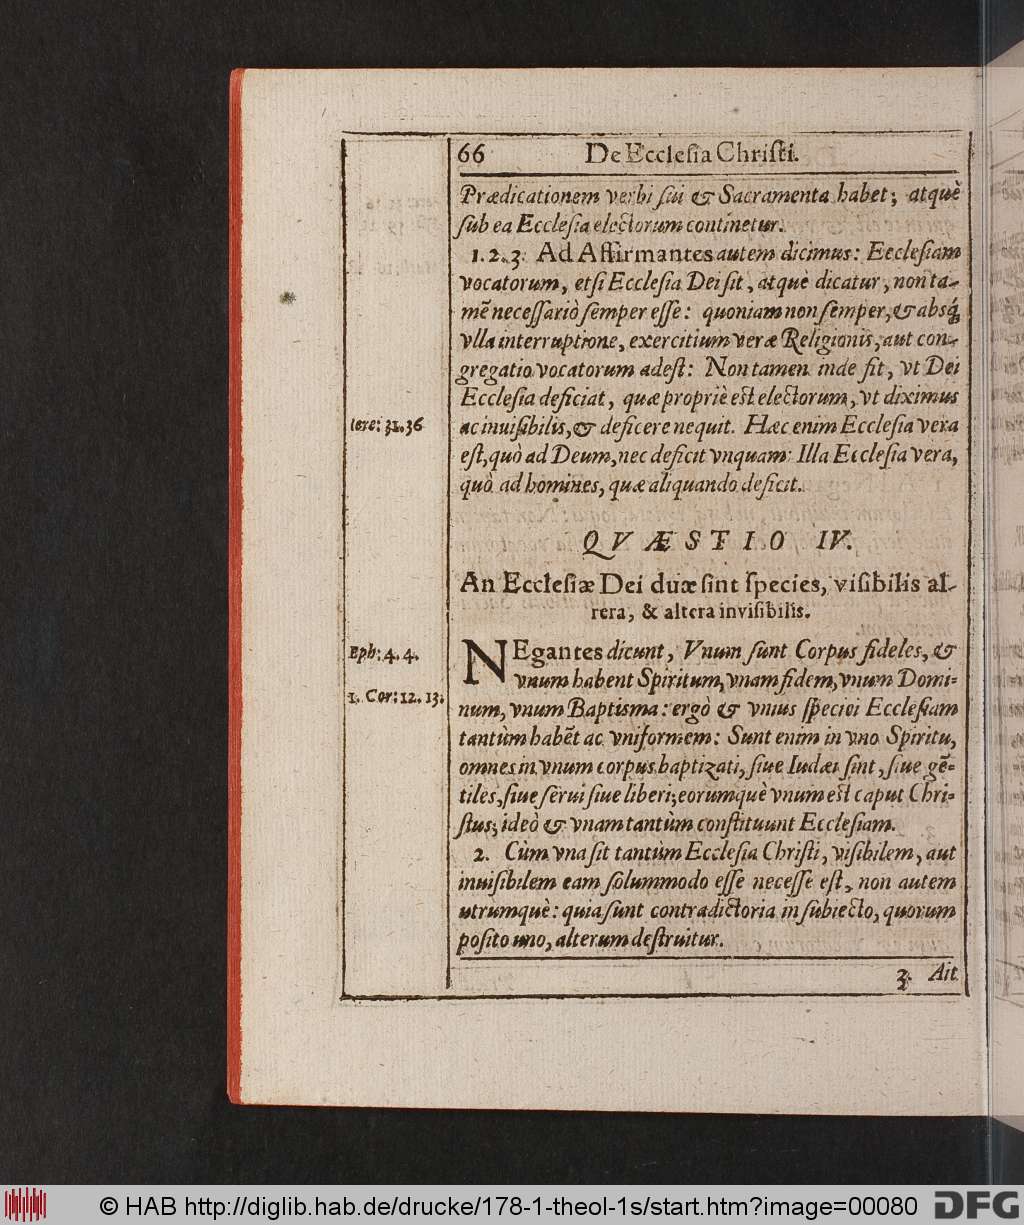 66 De Ecclesia Christi.
Prædicationem verbi sui & Sacramenta habet; atquè
sub ea Ecclesia electorum continetur.
1. 2. 3. Ad Affirmantes autem dicimus: Ecclesiam
vocatorum, etsi Ecclesia Dei sit, atquè dicatur, non ta-
mẽ necessariò semper esse: quoniam non semper, & absq́;
vlla interruptione, exercitium veræ Religionis, aut con-
gregatio vocatorum adest: Non tamen inde fit, vt Dei
Ecclesia deficiat, quæ propriè est electorum, vt diximus
Iere: 31. 36
ac inuisibilis, & deficere nequit. Hæc enim Ecclesia vera
est, quò ad Deum, nec deficit vnquam: Illa Ecclesia vera,
quò ad homines, quæ aliquando deficit.
QVÆSTIO IV.
An Ecclesiæ Dei duæ sint species, visibilis al-
tera, & altera invisibilis.
Eph: 4. 4.
NEgantes dicunt, Vnum sunt Corpus fideles, &
vnum habent Spiritum, vnam fidem, vnum Domi-
1. Cor: 12. 13.
num, vnum Baptisma: ergò & vnius speciei Ecclesiam
tantùm habẽt ac vniformem: Sunt enim in vno Spiritu,
omnes in vnum corpus baptizati, siue Iudæi sint, siue gẽ-
tiles, siue serui siue liberi; eorumquè vnum est caput Chri-
stus; ideò & vnam tantùm constituunt Ecclesiam.
2. Cùm vna sit tantùm Ecclesia Christi, visibilem, aut
inuisibilem eam solummodo esse necesse est, non autem
utrumquè: quia sunt contradictoria in subiecto, quorum
posito uno, alterum destruitur.
3. Ait
© HAB http://diglib.hab.de/drucke/178-1-theol-1s/start.htm?image=00080
DFG